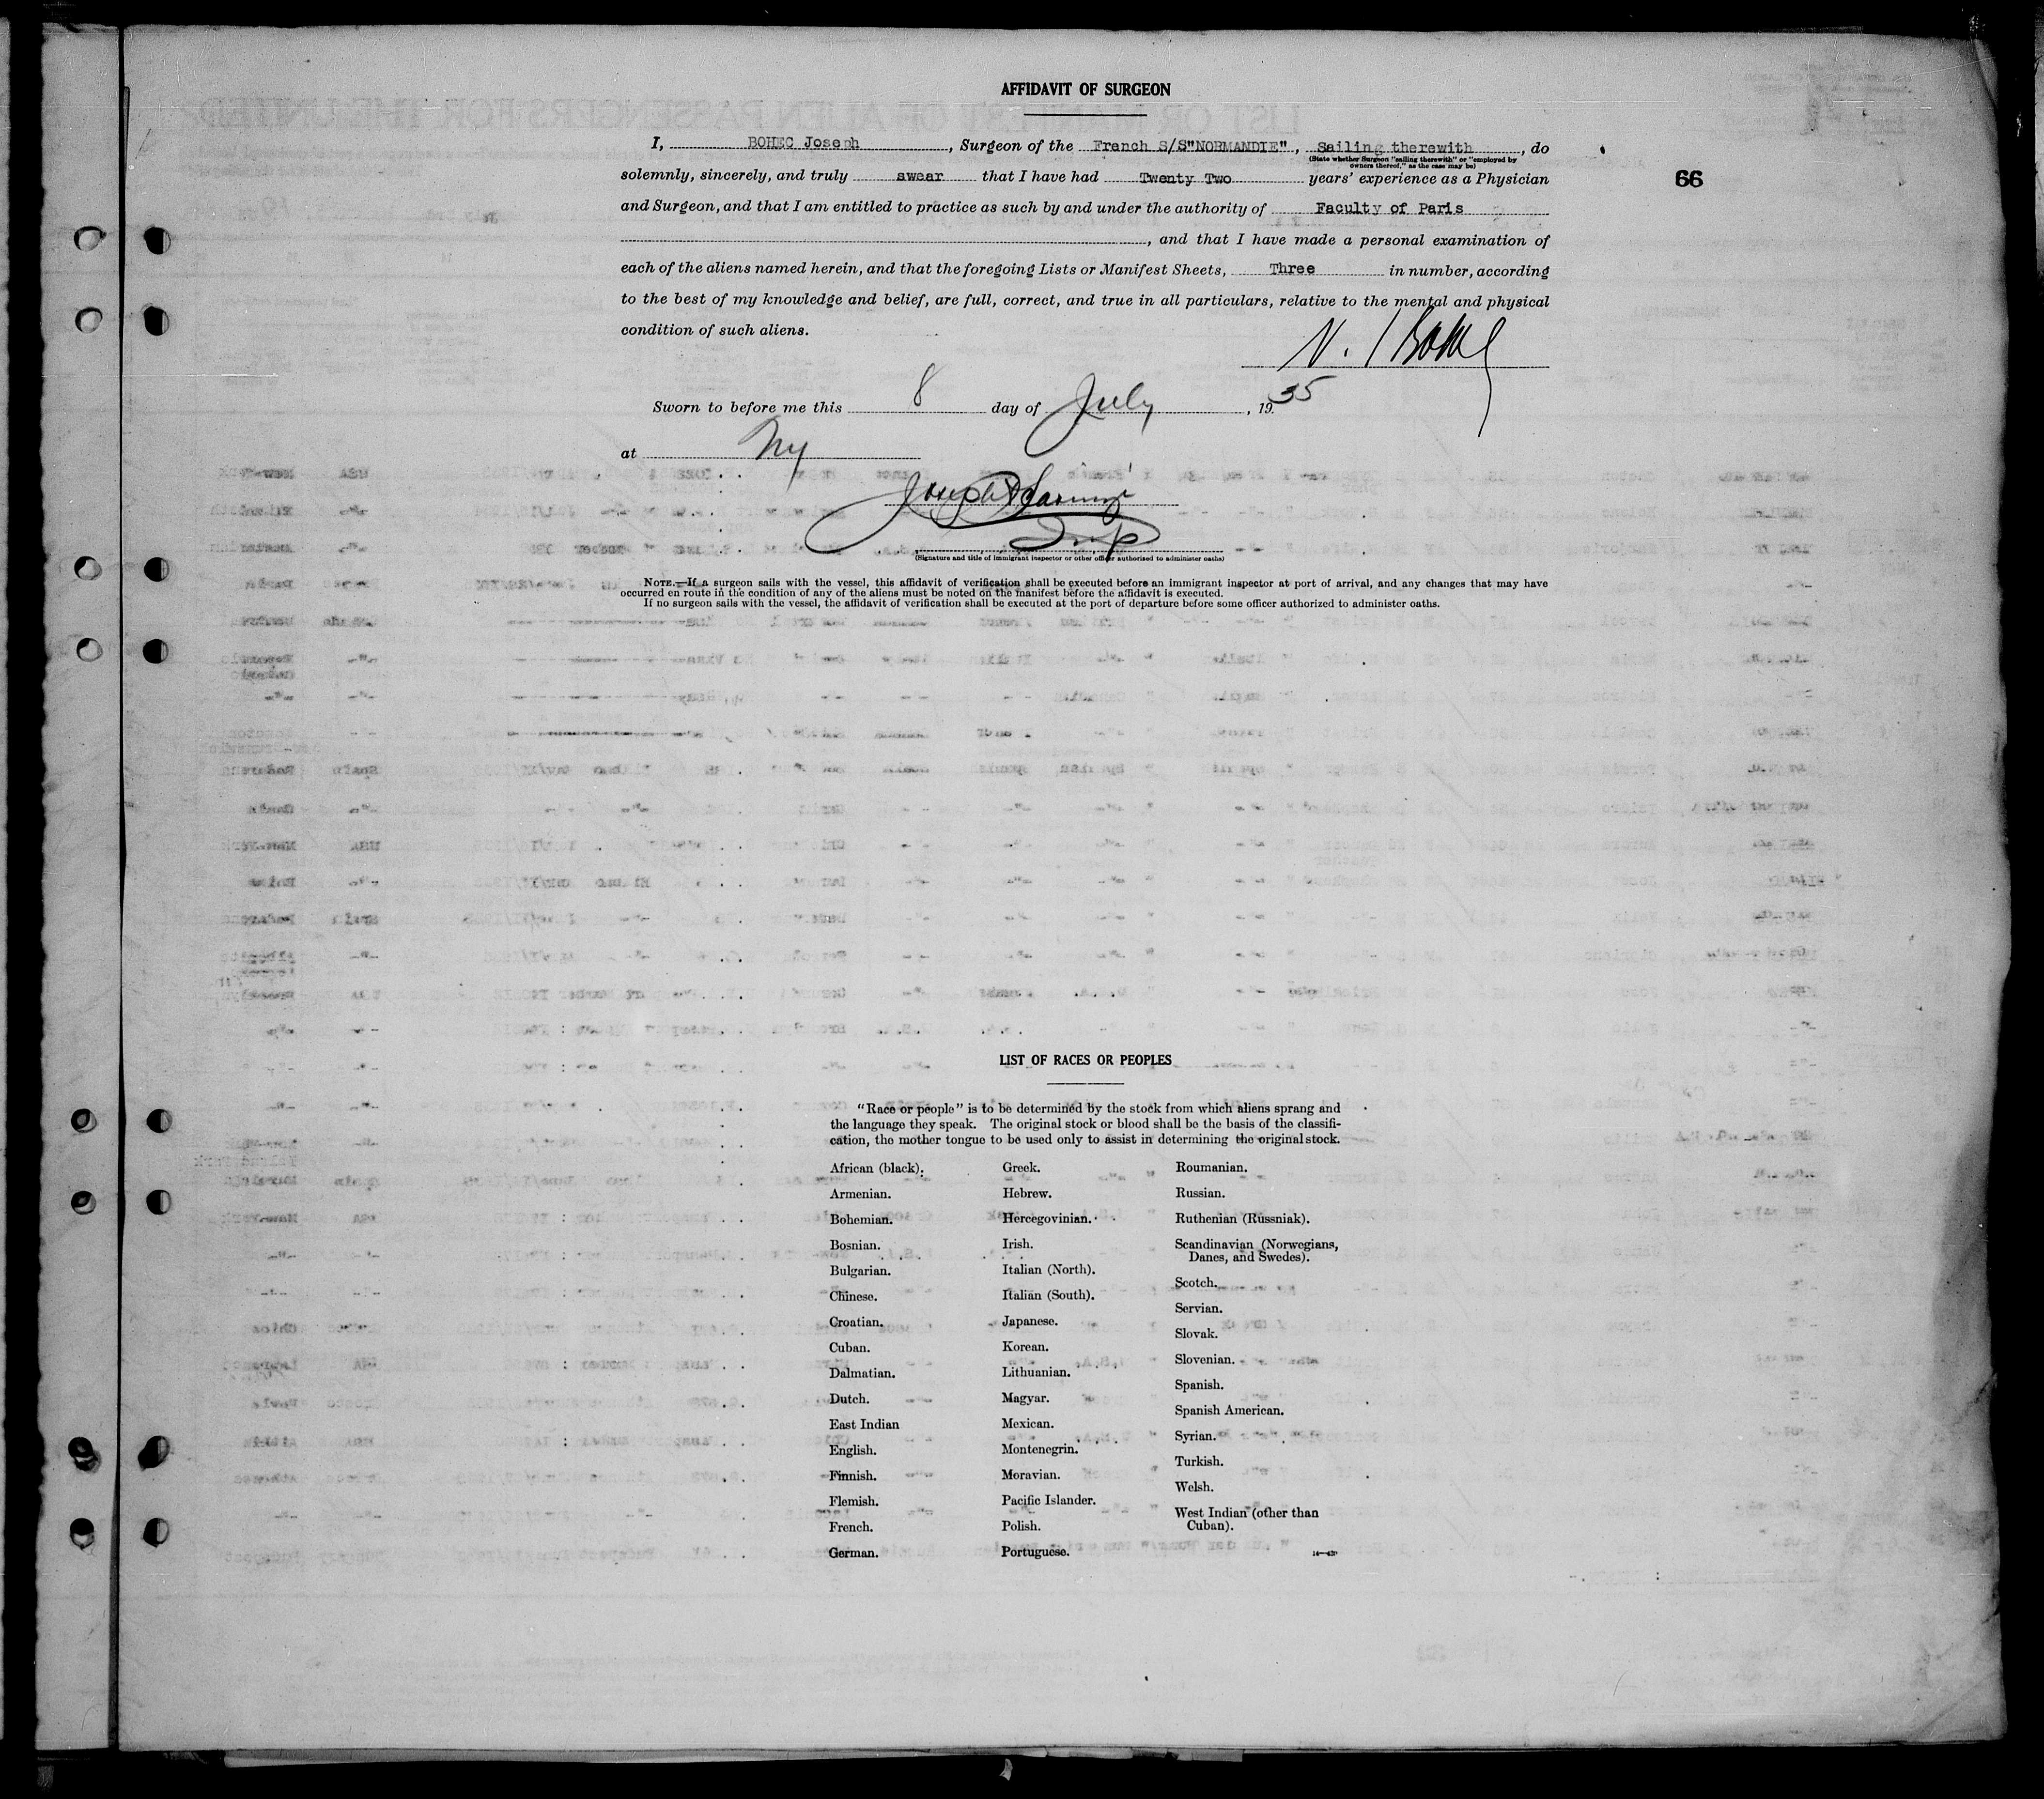 AFFIDAVIT OF SURGEON
I, BOHEC Joseph, Surgeon of the French S/S"NORMANDIE", Sailing therewith, do
(State whether Surgeon "sailing therewith" or "employed by
owners thereof," as the case may be)
solemnly, sincerely, and truly swear that I have had Twenty Two years' experience as a Physician
66
and Surgeon, and that I am entitled to practice as such by and under the authority of Faculty of Paris
, and that I have made a personal examination of
each of the aliens named herein, and that the foregoing Lists or Manifest Sheets, Three in number, according
to the best of my knowledge and belief, are full, correct, and true in all particulars, relative to the mental and physical
condition of such aliens.
Sworn to before me this 8 day of July, 1935
at Ny
Joseph
Insp
(Signature and title of immigrant inspector or other officer authorized to administer oaths)
NOTE.—If a surgeon sails with the vessel, this affidavit of verification shall be executed before an immigrant inspector at port of arrival, and any changes that may have
occurred en route in the condition of any of the aliens must be noted on the manifest before the affidavit is executed.
If no surgeon sails with the vessel, the affidavit of verification shall be executed at the port of departure before some officer authorized to administer oaths.
LIST OF RACES OR PEOPLES
"Race or people" is to be determined by the stock from which aliens sprang and
the language they speak. The original stock or blood shall be the basis of the classifi-
cation, the mother tongue to be used only to assist in determining the original stock.
African (black).
Armenian.
Bohemian.
Bosnian.
Bulgarian.
Chinese.
Croatian.
Cuban.
Dalmatian.
Dutch.
East Indian
English.
Finnish.
Flemish.
French.
German.
Greek.
Hebrew.
Hercegovinian.
Irish.
Italian (North).
Italian (South).
Japanese.
Korean.
Lithuanian.
Magyar.
Mexican.
Montenegrin.
Moravian.
Pacific Islander.
Polish.
Portuguese.
Roumanian.
Russian.
Ruthenian (Russniak).
Scandinavian (Norwegians,
Danes, and Swedes).
Scotch.
Servian.
Slovak.
Slovenian.
Spanish.
Spanish American.
Syrian.
Turkish.
Welsh.
West Indian (other than
Cuban).